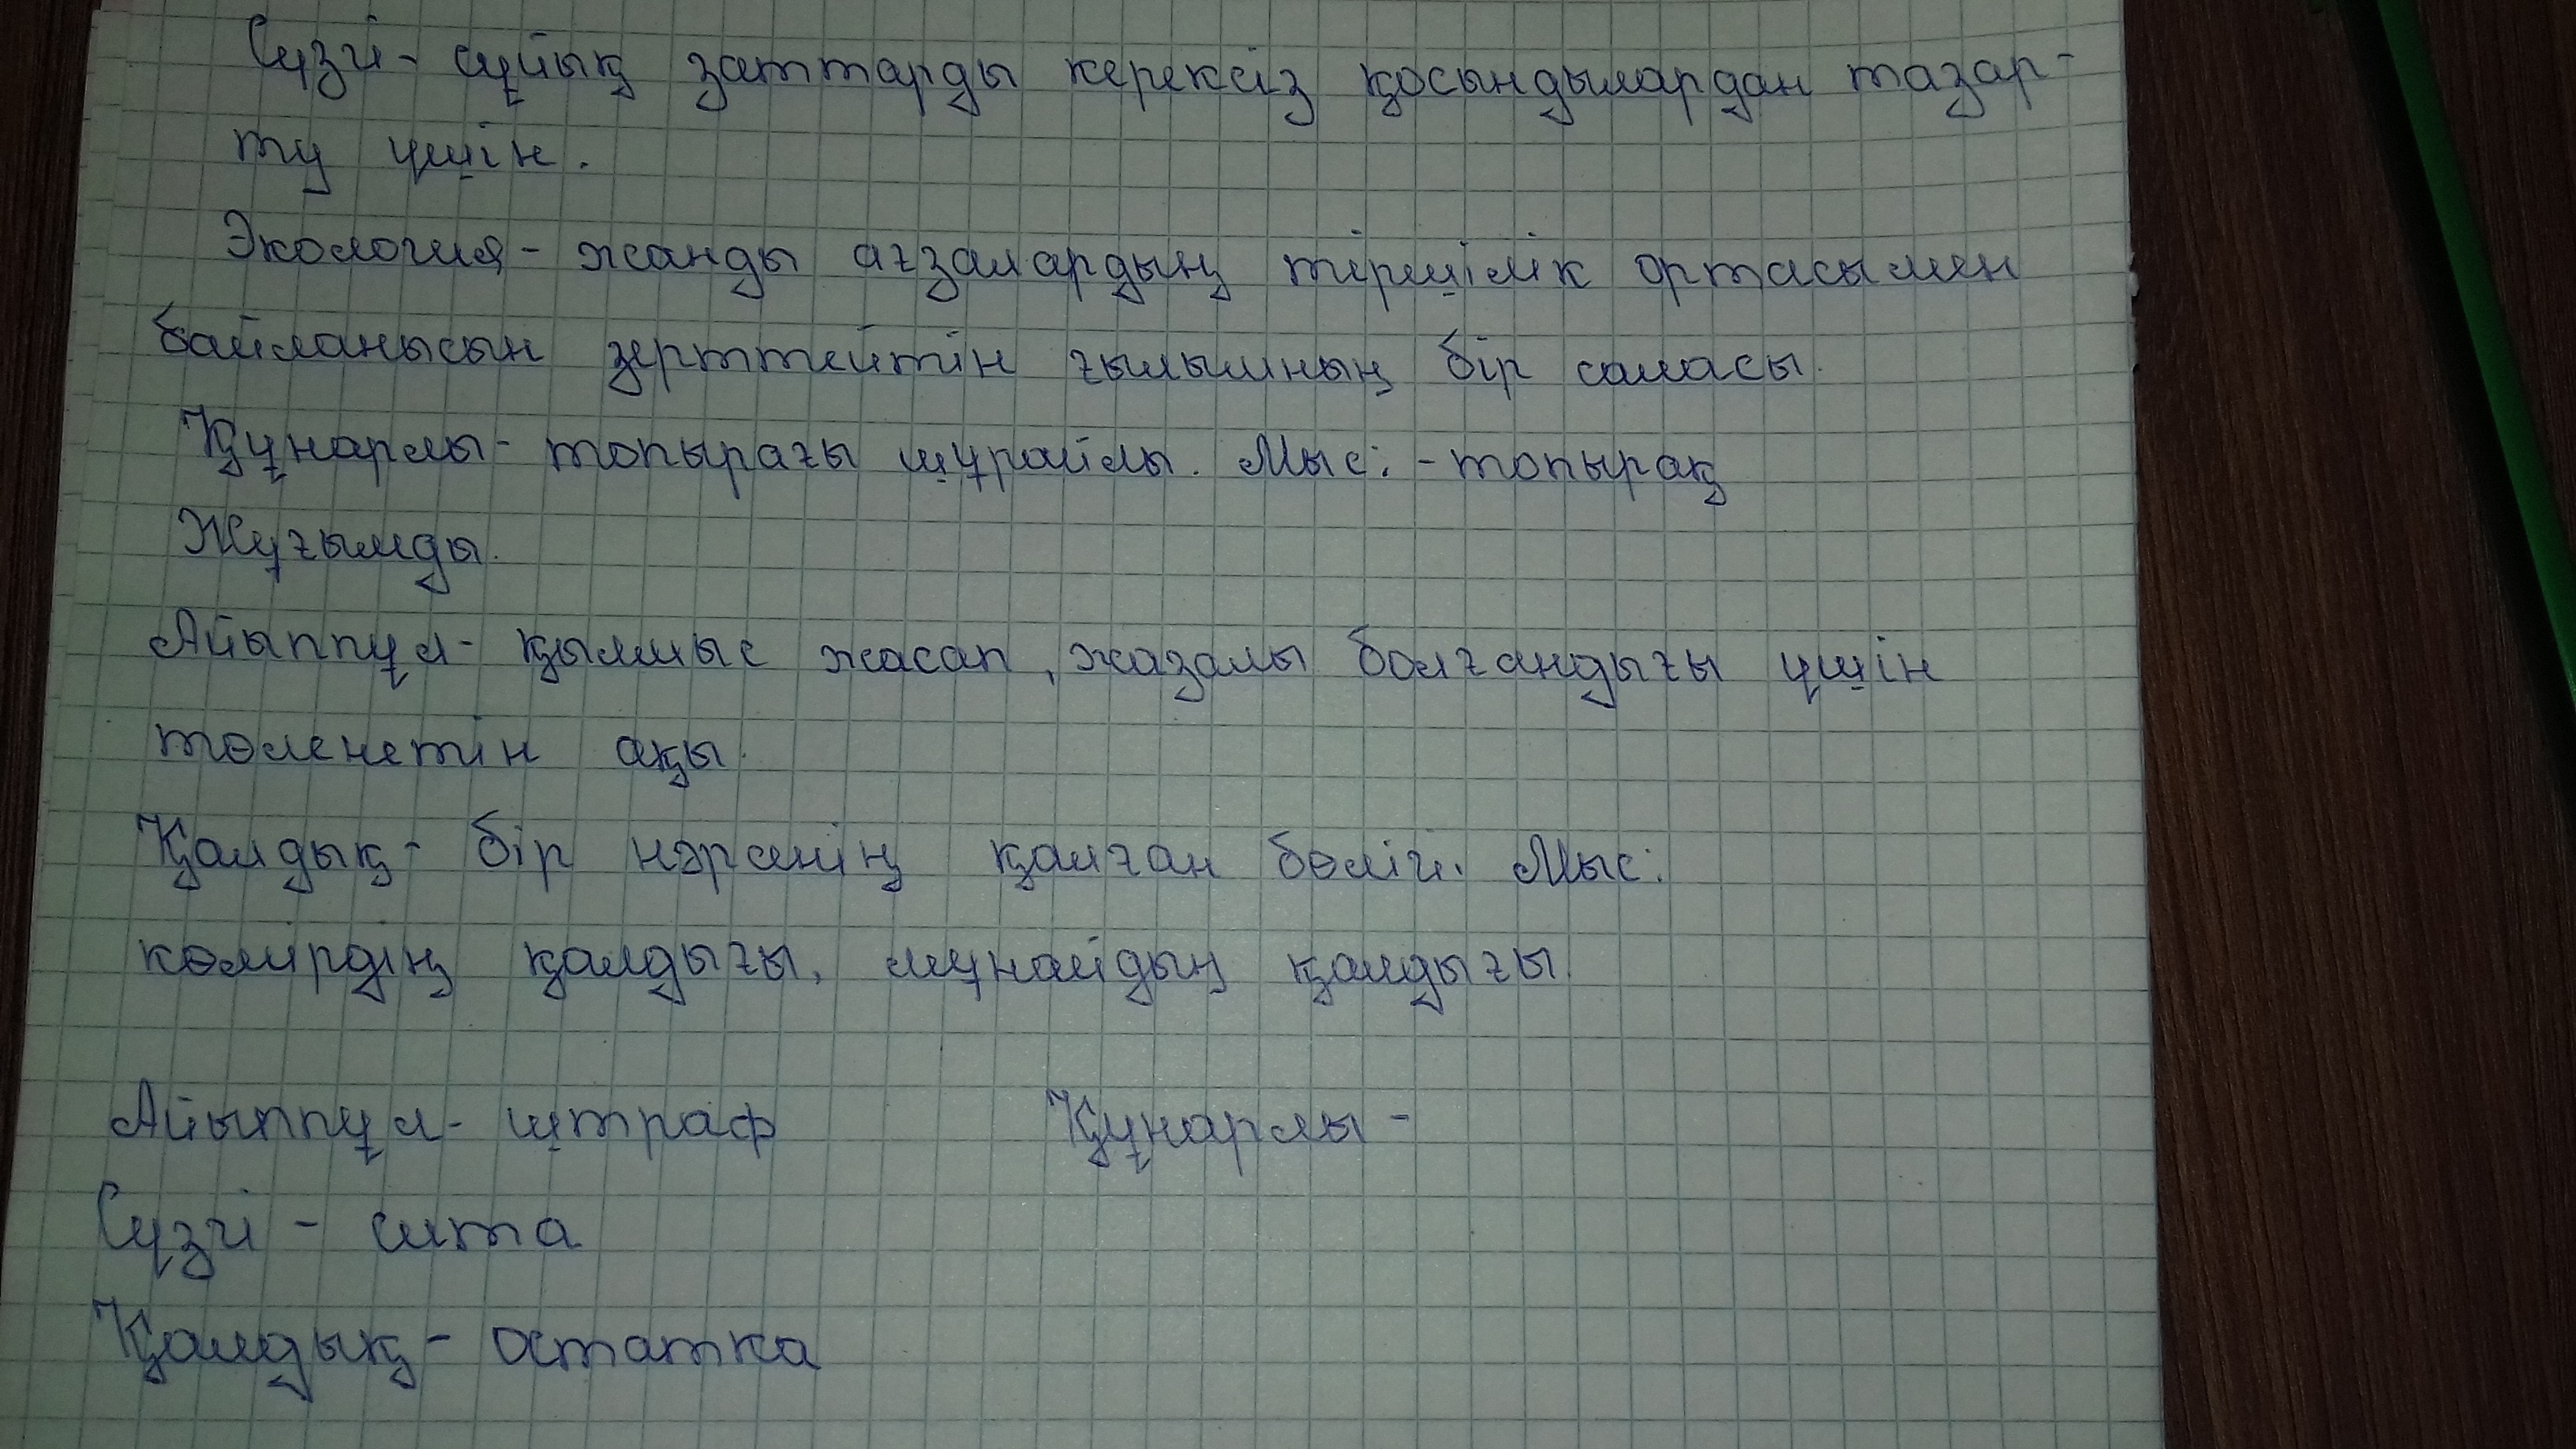 Сүзгі - сұйық заттарды керексіз қосындылардан тазар-
ту үшін.
Экология - жанды ағзалардың тіршілік ортасымен
байланысын зерттейтін ғылымның бір саласы.
Құнарлы - топырағы шұрайлы. Мыс: - топырақ
Жұғымды.
Айыппұл - қылмыс жасап, жазалы болғандығы үшін
төленетін ақы.
Қалдық - бір нәрсенің қалған бөлігі. Мыс:
көмірдің қалдығы, мұнайдың қалдығы.
Айыппұл - штраф Құнарлы -
Сүзгі - сита
Қалдық - остатка